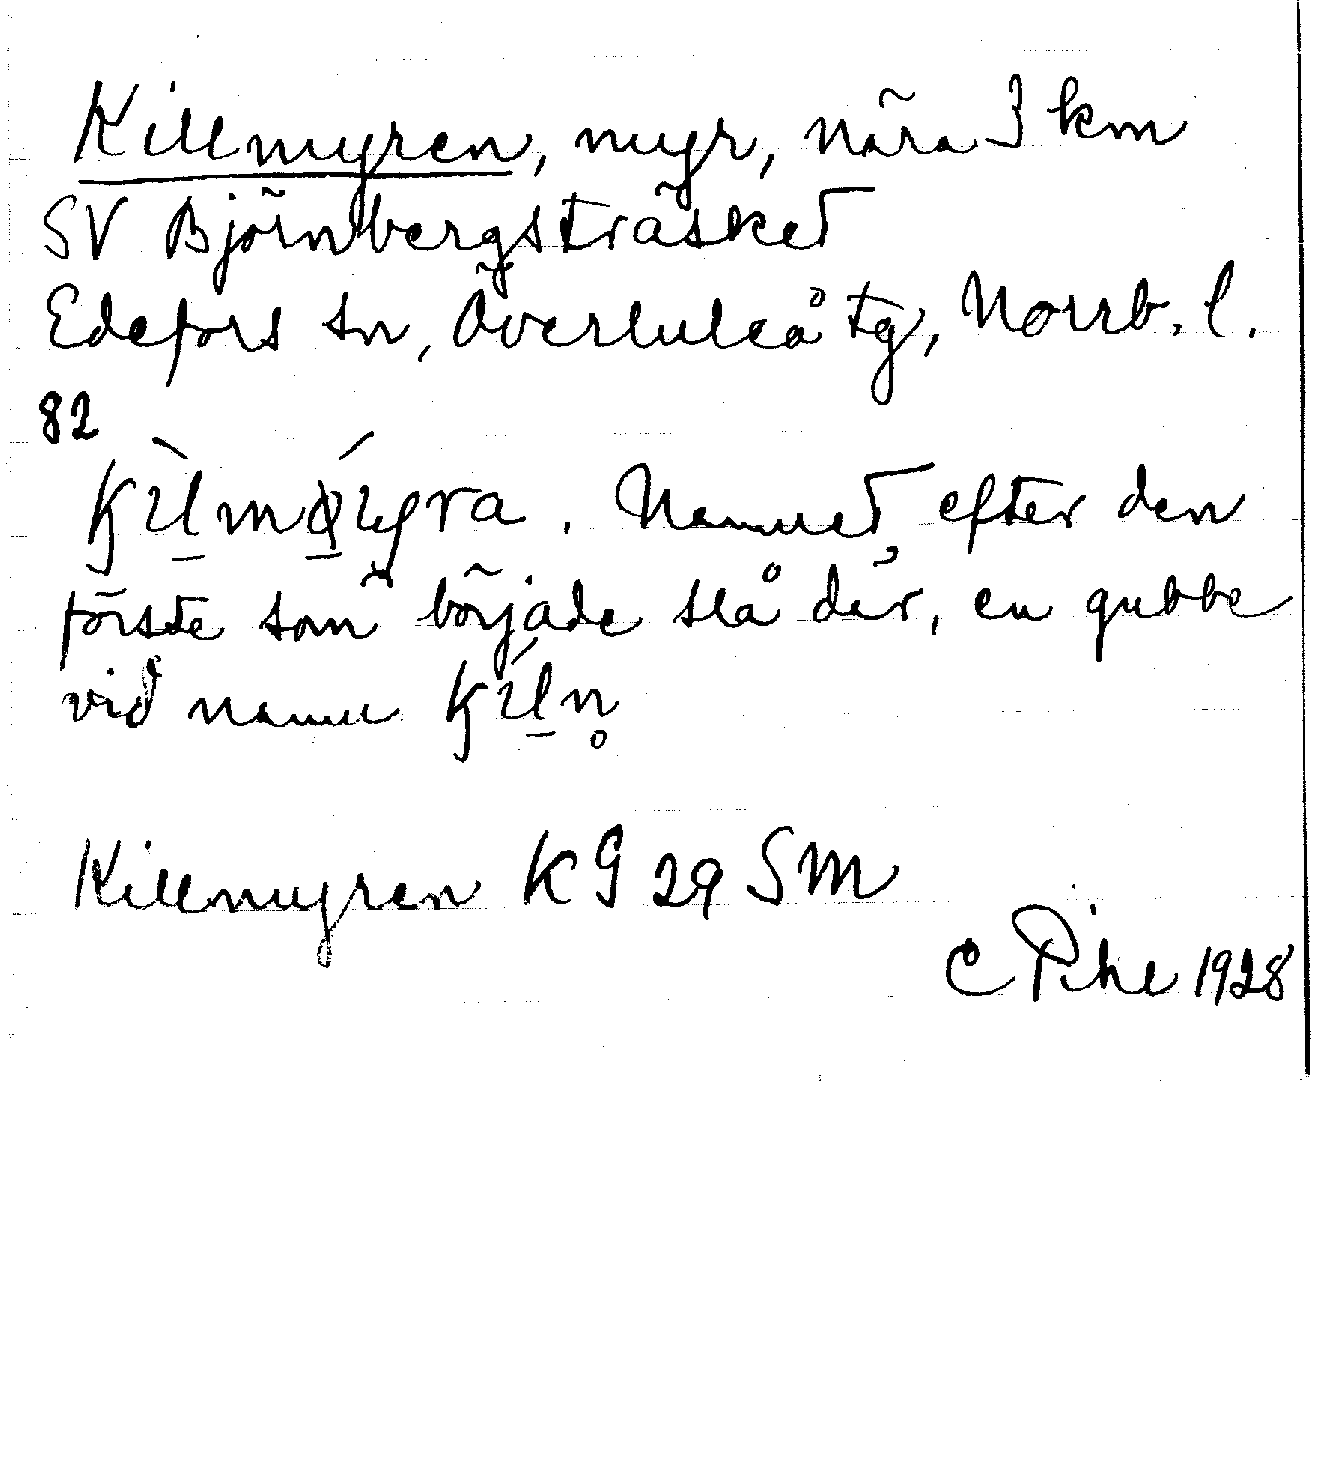 Killmyren, myr, nära 3 km
SV Björnbergsträsket
Edefors sn, Överluleå tg, Norrb. l.
82
Namnet efter den
förste som började slå där, en gubbe
vid namn
Killmyren K G 29 SM
C Pihl 1928